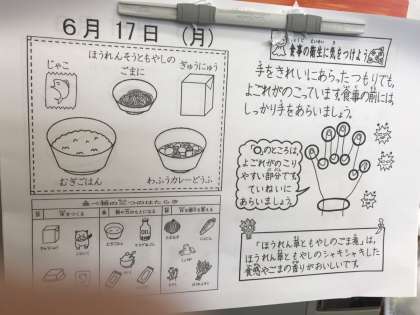 6月 17日 (月)
ほうれんそうともやしの
ごまに
じゃこ
ぎゅうにゅう
むぎごはん
わふうカレーどうふ
食べ物の三つのはたらき
食事の衛生に気をつけよう
手をきれいにあらったつもりでも、
よごれがのこっています。食事の前には、
しっかり手をあらいましょう。
○のところは、
よごれがのこり
やすい部分です。
ていねいに
あらいましょう。
「ほうれん草ともやしのごま煮」は、
ほうれん草ともやしのシャキシャキした
食感やごまの香りがおいしいです。